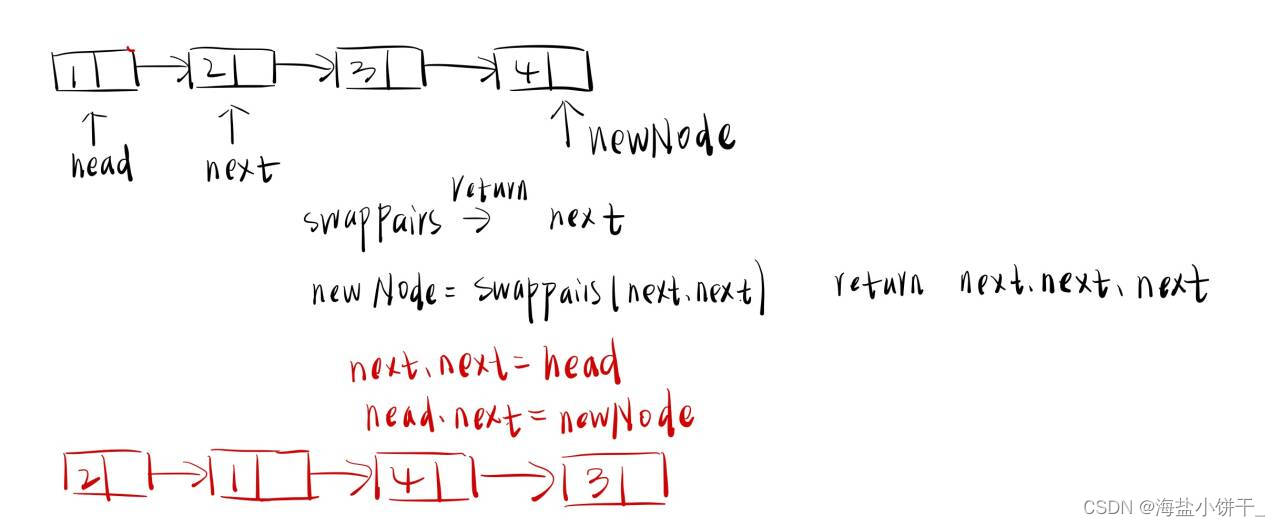 1 2 3 4
head next newNode
swappairs return → next
newNode = swappairs(next.next) return next.next.next
next.next = head
head.next = newNode
2 1 4 3
CSDN @海盐小饼干_